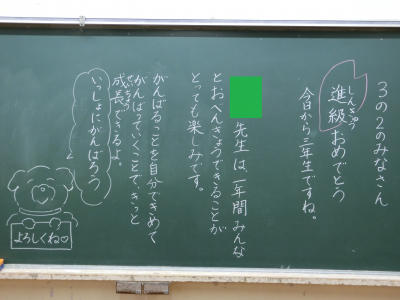 3の2のみなさん
進級おめでとう
しんきゅう
今日から三年生ですね。
先生は、一年間みんな
とおべんきょうできることが
とっても楽しみです。
がんばることを自分できめて
がんばっていくことで、きっと
成長できるよ。
せいちょう
いっしょにがんばろう
よろしくね♡